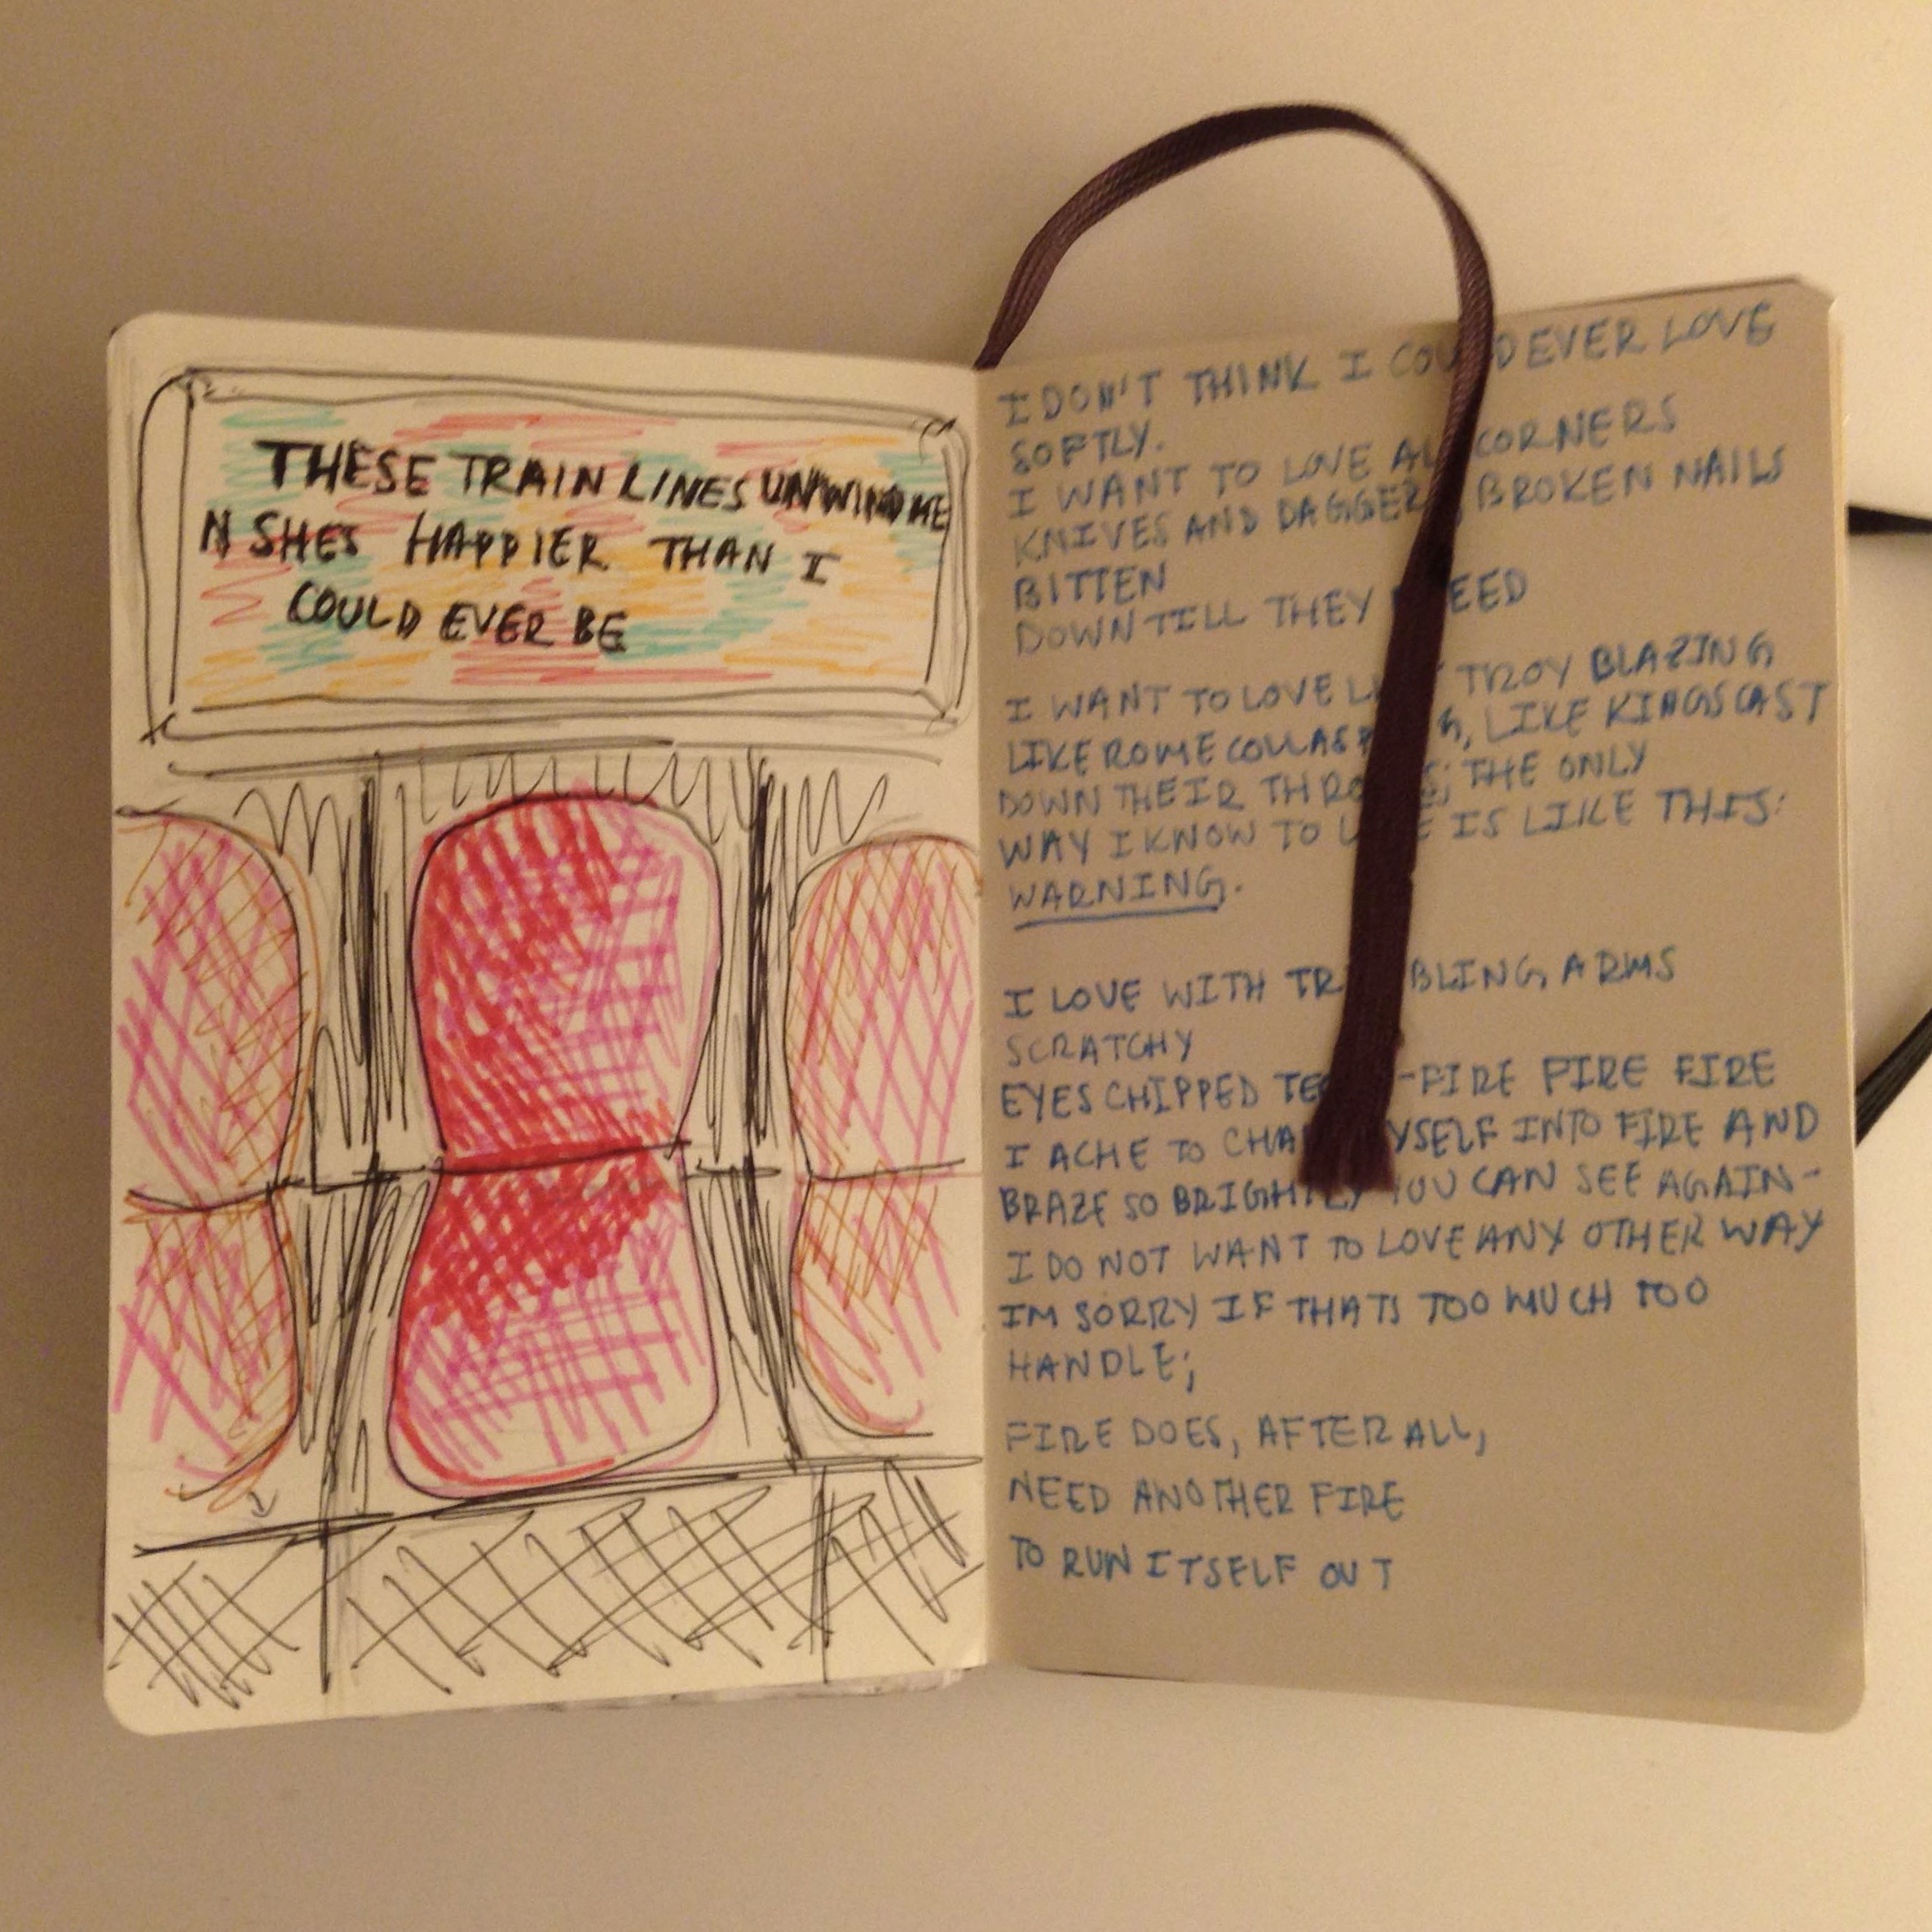 THESE TRAIN LINES UNWIND ME
N SHES HAPPIER THAN I
COULD EVER BE
I DON'T THINK I COULD EVER LOVE
SOFTLY.
I WANT TO LOVE ALL CORNERS
KNIVES AND DAGGERS, BROKEN NAILS
BITTEN
DOWN TILL THEY BLEED
I WANT TO LOVE LIKE TROY BLAZING
LIKE ROME COLLASPING, LIKE KINGS CAST
DOWN THEIR THRONES; THE ONLY
WAY I KNOW TO LOVE IS LIKE THIS:
WARNING.
I LOVE WITH TREMBLING ARMS
SCRATCHY
EYES CHIPPED TEETH-FIRE FIRE FIRE
I ACHE TO CHAR MYSELF INTO FIRE AND
BRAZE SO BRIGHTLY YOU CAN SEE AGAIN-
I DO NOT WANT TO LOVE ANY OTHER WAY
IM SORRY IF THATS TOO MUCH TOO
HANDLE;
FIRE DOES, AFTER ALL,
NEED ANOTHER FIRE
TO RUN ITSELF OUT